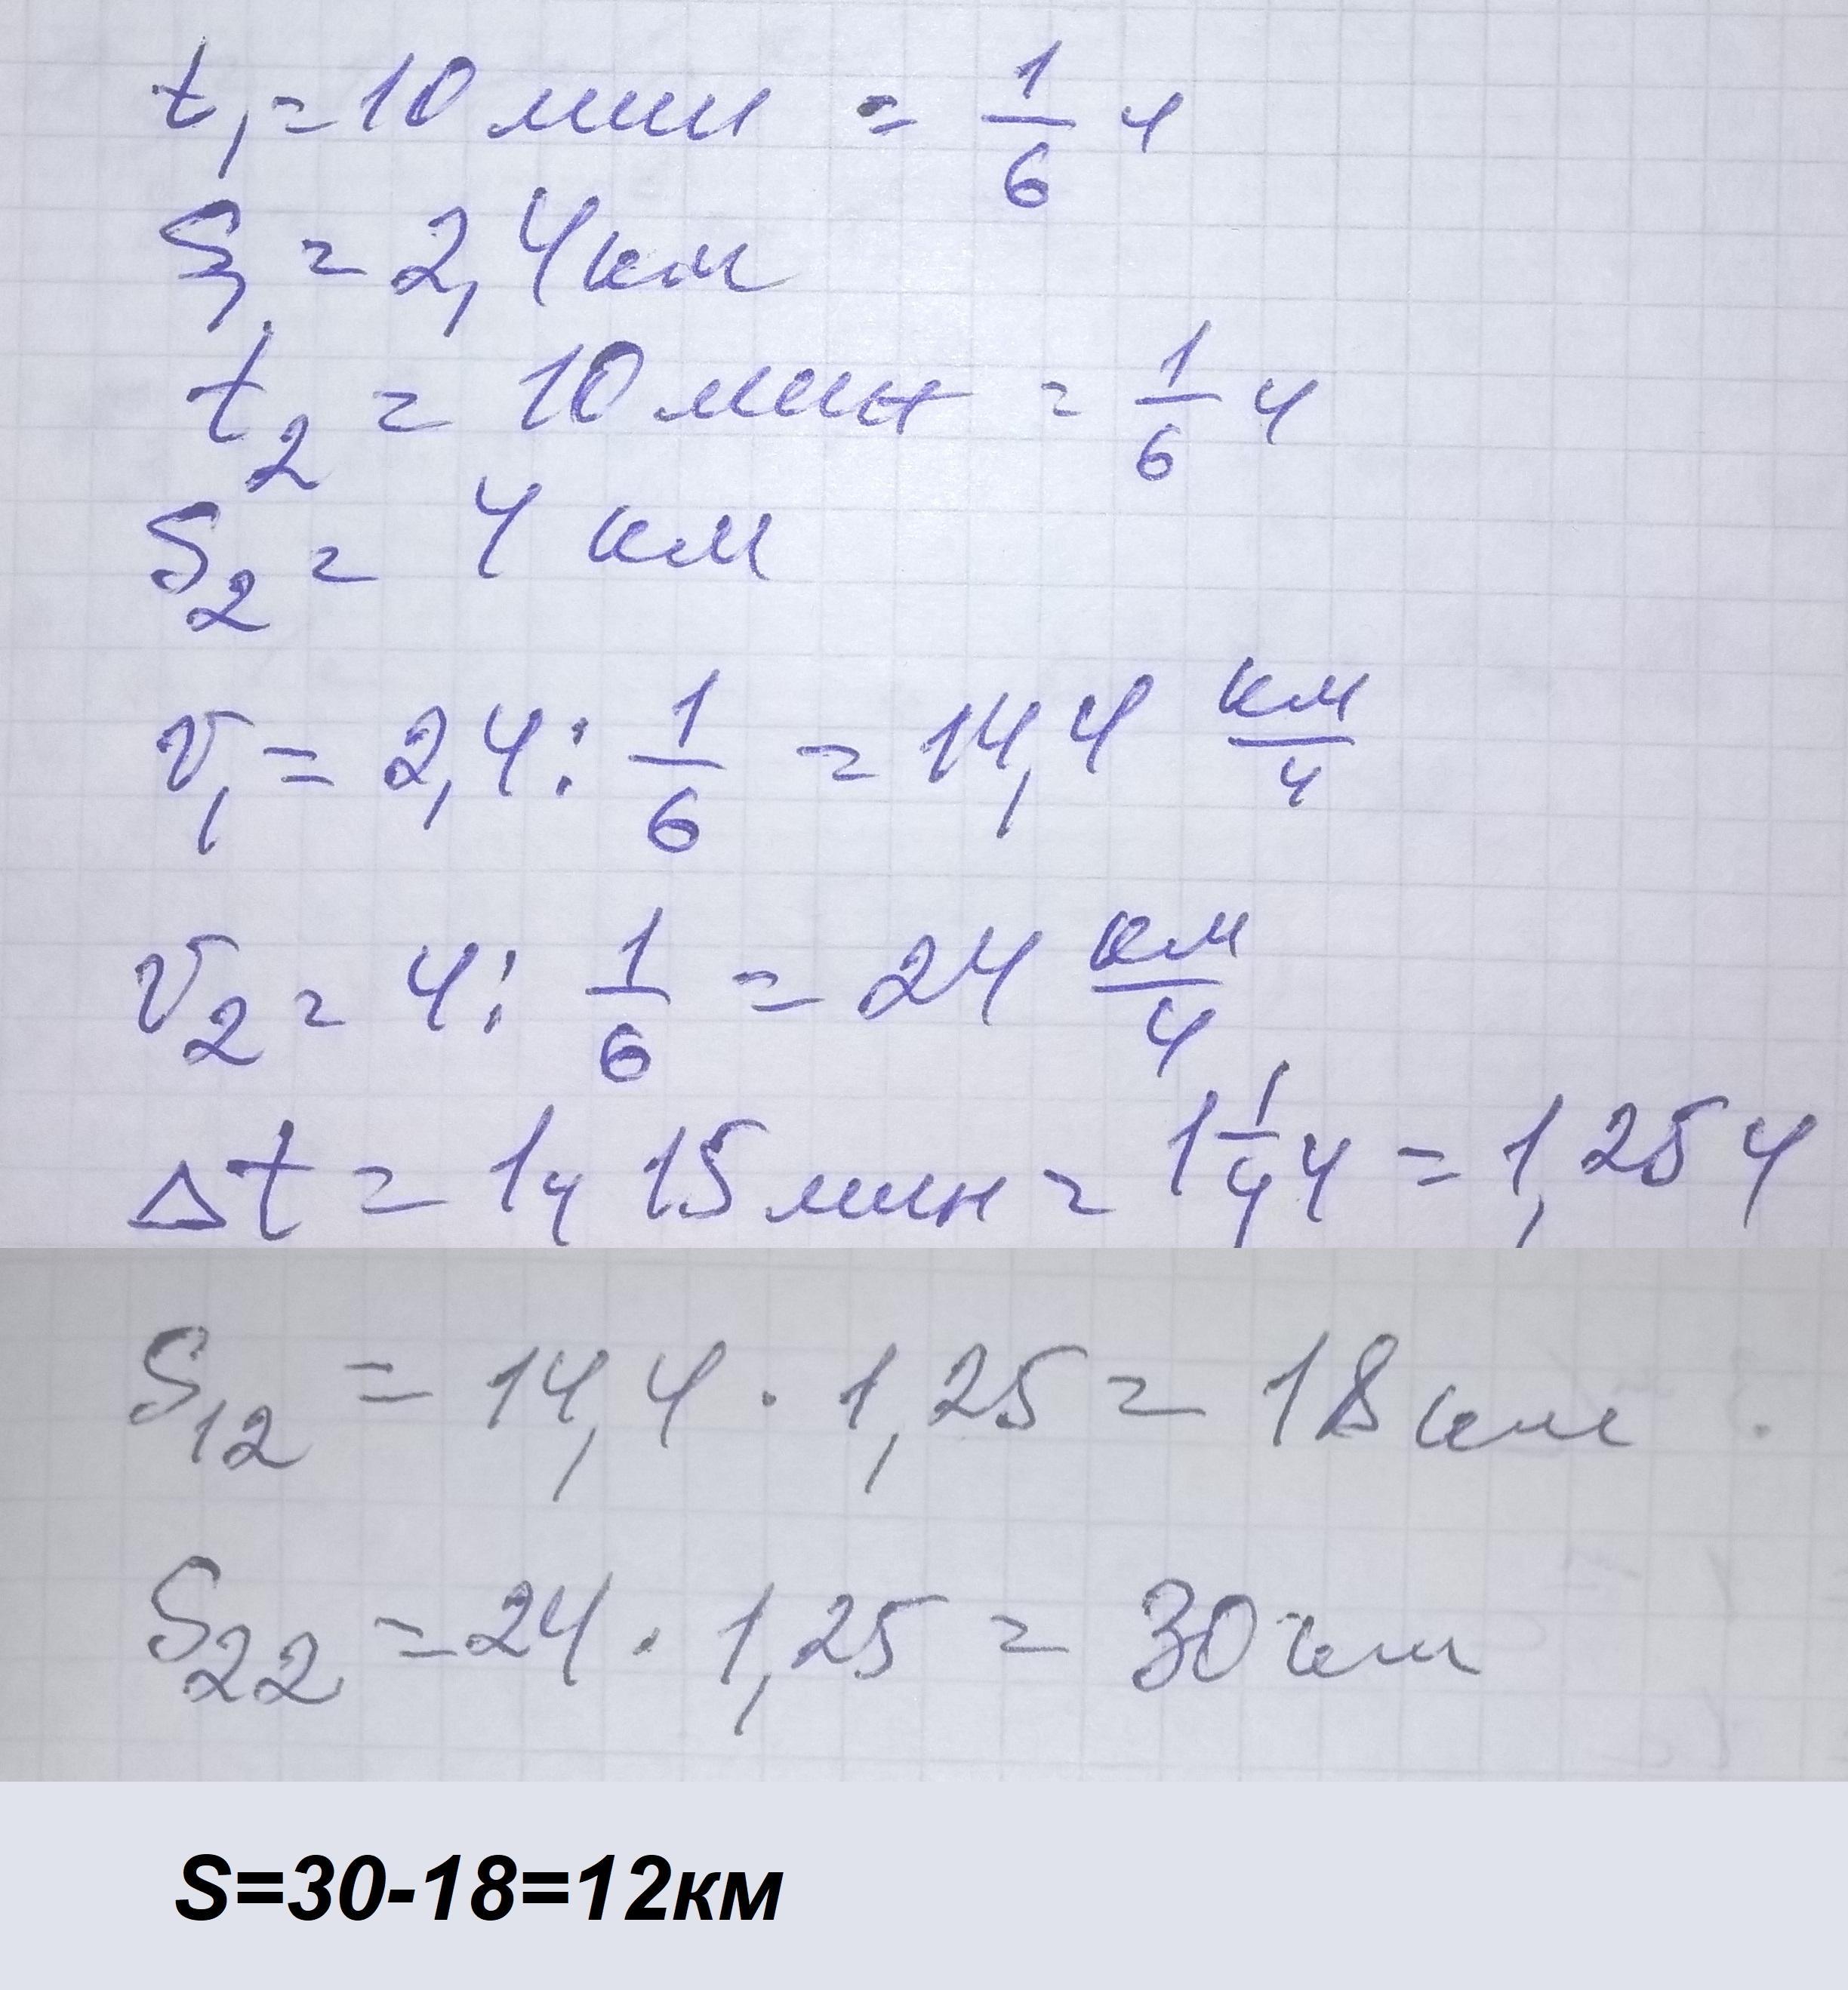 t₁ = 10 мин = 1/6 ч
S₁ = 2,4 км
t₂ = 10 мин = 1/6 ч
S₂ = 4 км
v₁ = 2,4 : 1/6 = 14,4 км/ч
v₂ = 4 : 1/6 = 24 км/ч
Δt = 1ч 15 мин = 1 1/4 ч = 1,25 ч
S₁₂ = 14,4 · 1,25 = 18 км
S₂₂ = 24 · 1,25 = 30 км
S=30-18=12км